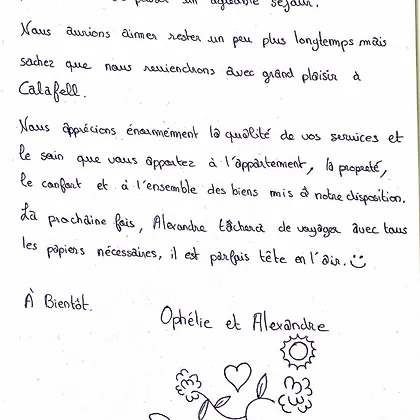 de passer un agréable séjour.
Nous aurions aimer rester un peu plus longtemps mais
sachez que nous reviendrons avec grand plaisir à
Calafell.
Nous apprécions énormément la qualité de vos services et
le soin que vous apportez à l'appartement, la propreté,
le confort et à l'ensemble des biens mis à notre disposition.
La prochaine fois, Alexandre tâchera de voyager avec tous
les papiers nécessaires, il est parfois tête en l'air.
À Bientôt.
Ophélie et Alexandre